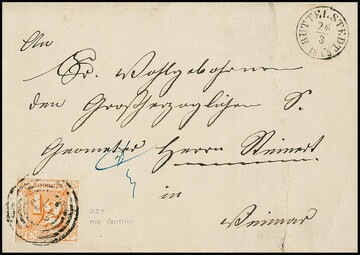 BUTTELSTEDT
26
3
An
Sr. Wohlgeboren
den Großherzoglichen S.
Geometer Herrn Steinert
in
Weimar